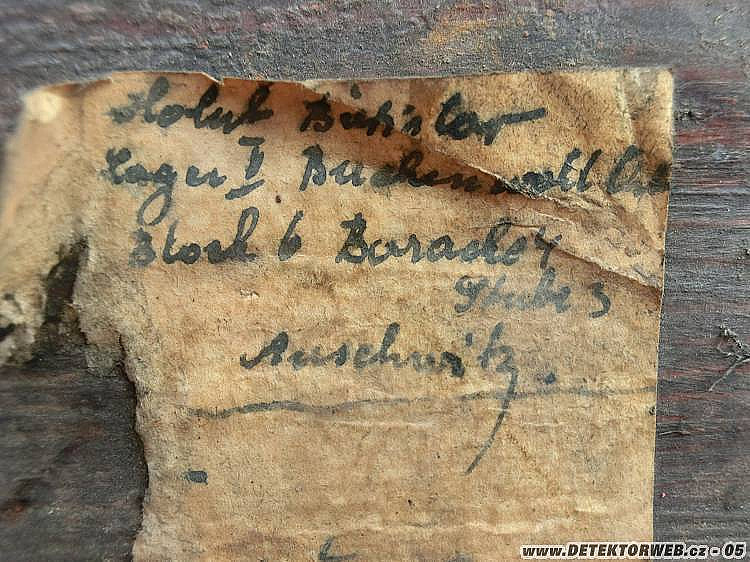 Holub
Lager I Buchenwald
Block 6 Baracke 4
Stube 3
Auschwitz.
www.DETEKTORWEB.cz - 05